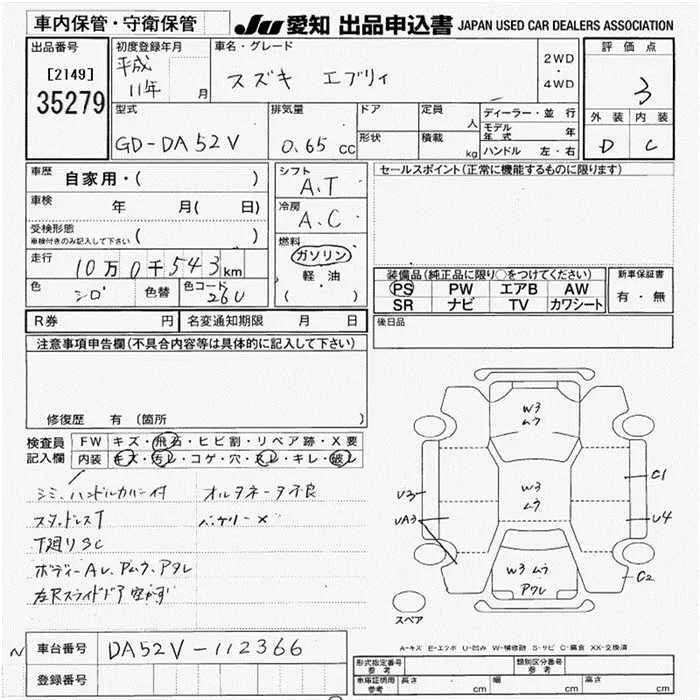 車内保管・守衛保管
JU 愛知 出品申込書 JAPAN USED CAR DEALERS ASSOCIATION
出品番号
[2149]
35279
初度登録年月
平成
11年 月
車名・グレード
スズキ エブリィ
2WD
・
4WD
評価点
3
外装 内装
D C
型式
GD-DA52V
排気量
0.65 cc
ドア
形状
定員
人
積載
kg
ディーラー・並行
モデル年式 年
ハンドル 左・右
車歴 自家用・( )
車検 年 月(日)
受検形態
車検付きのみ記入して下さい ( )
走行 10万0千543km
色 シロ 色替 色コード 26U
シフト
A.T
冷房
A.C
燃料
ガソリン
軽・油
( )
セールスポイント(正常に機能するものに限ります)
装備品(純正品に限り○をつけてください)
PS PW エアB AW
SR ナビ TV カワシート
新車保証書
有・無
R券 円 名変通知期限 月 日
後日品
注意事項申告欄(不具合内容等は具体的に記入して下さい)
修復歴 有 (箇所 )
検査員
記入欄
FW キズ・飛石・ヒビ割・リペア跡・X要
内装 キズ・汚レ・コゲ・穴・スレ・キレ・破レ
シミ、ハンドルカバー付 オルタネータ不良
スタッドレスT バッテリーX
下廻りSC
ボディーAレ、アムク、アタレ
左Rスライドドア空かず
W3
ムラ
W3
ムラ
W3 ムラ
アワレ
U3
UA3
C1
U4
C2
スペア
A-キズ E-エクボ U-凹み W-補修跡 S-サビ C-腐食 XX-交換済
車台番号 DA52V-112366
登録番号
形式指定番号
参考
類別区分番号
参考
車庫証明用
参考
長さ cm 幅 cm 高さ cm